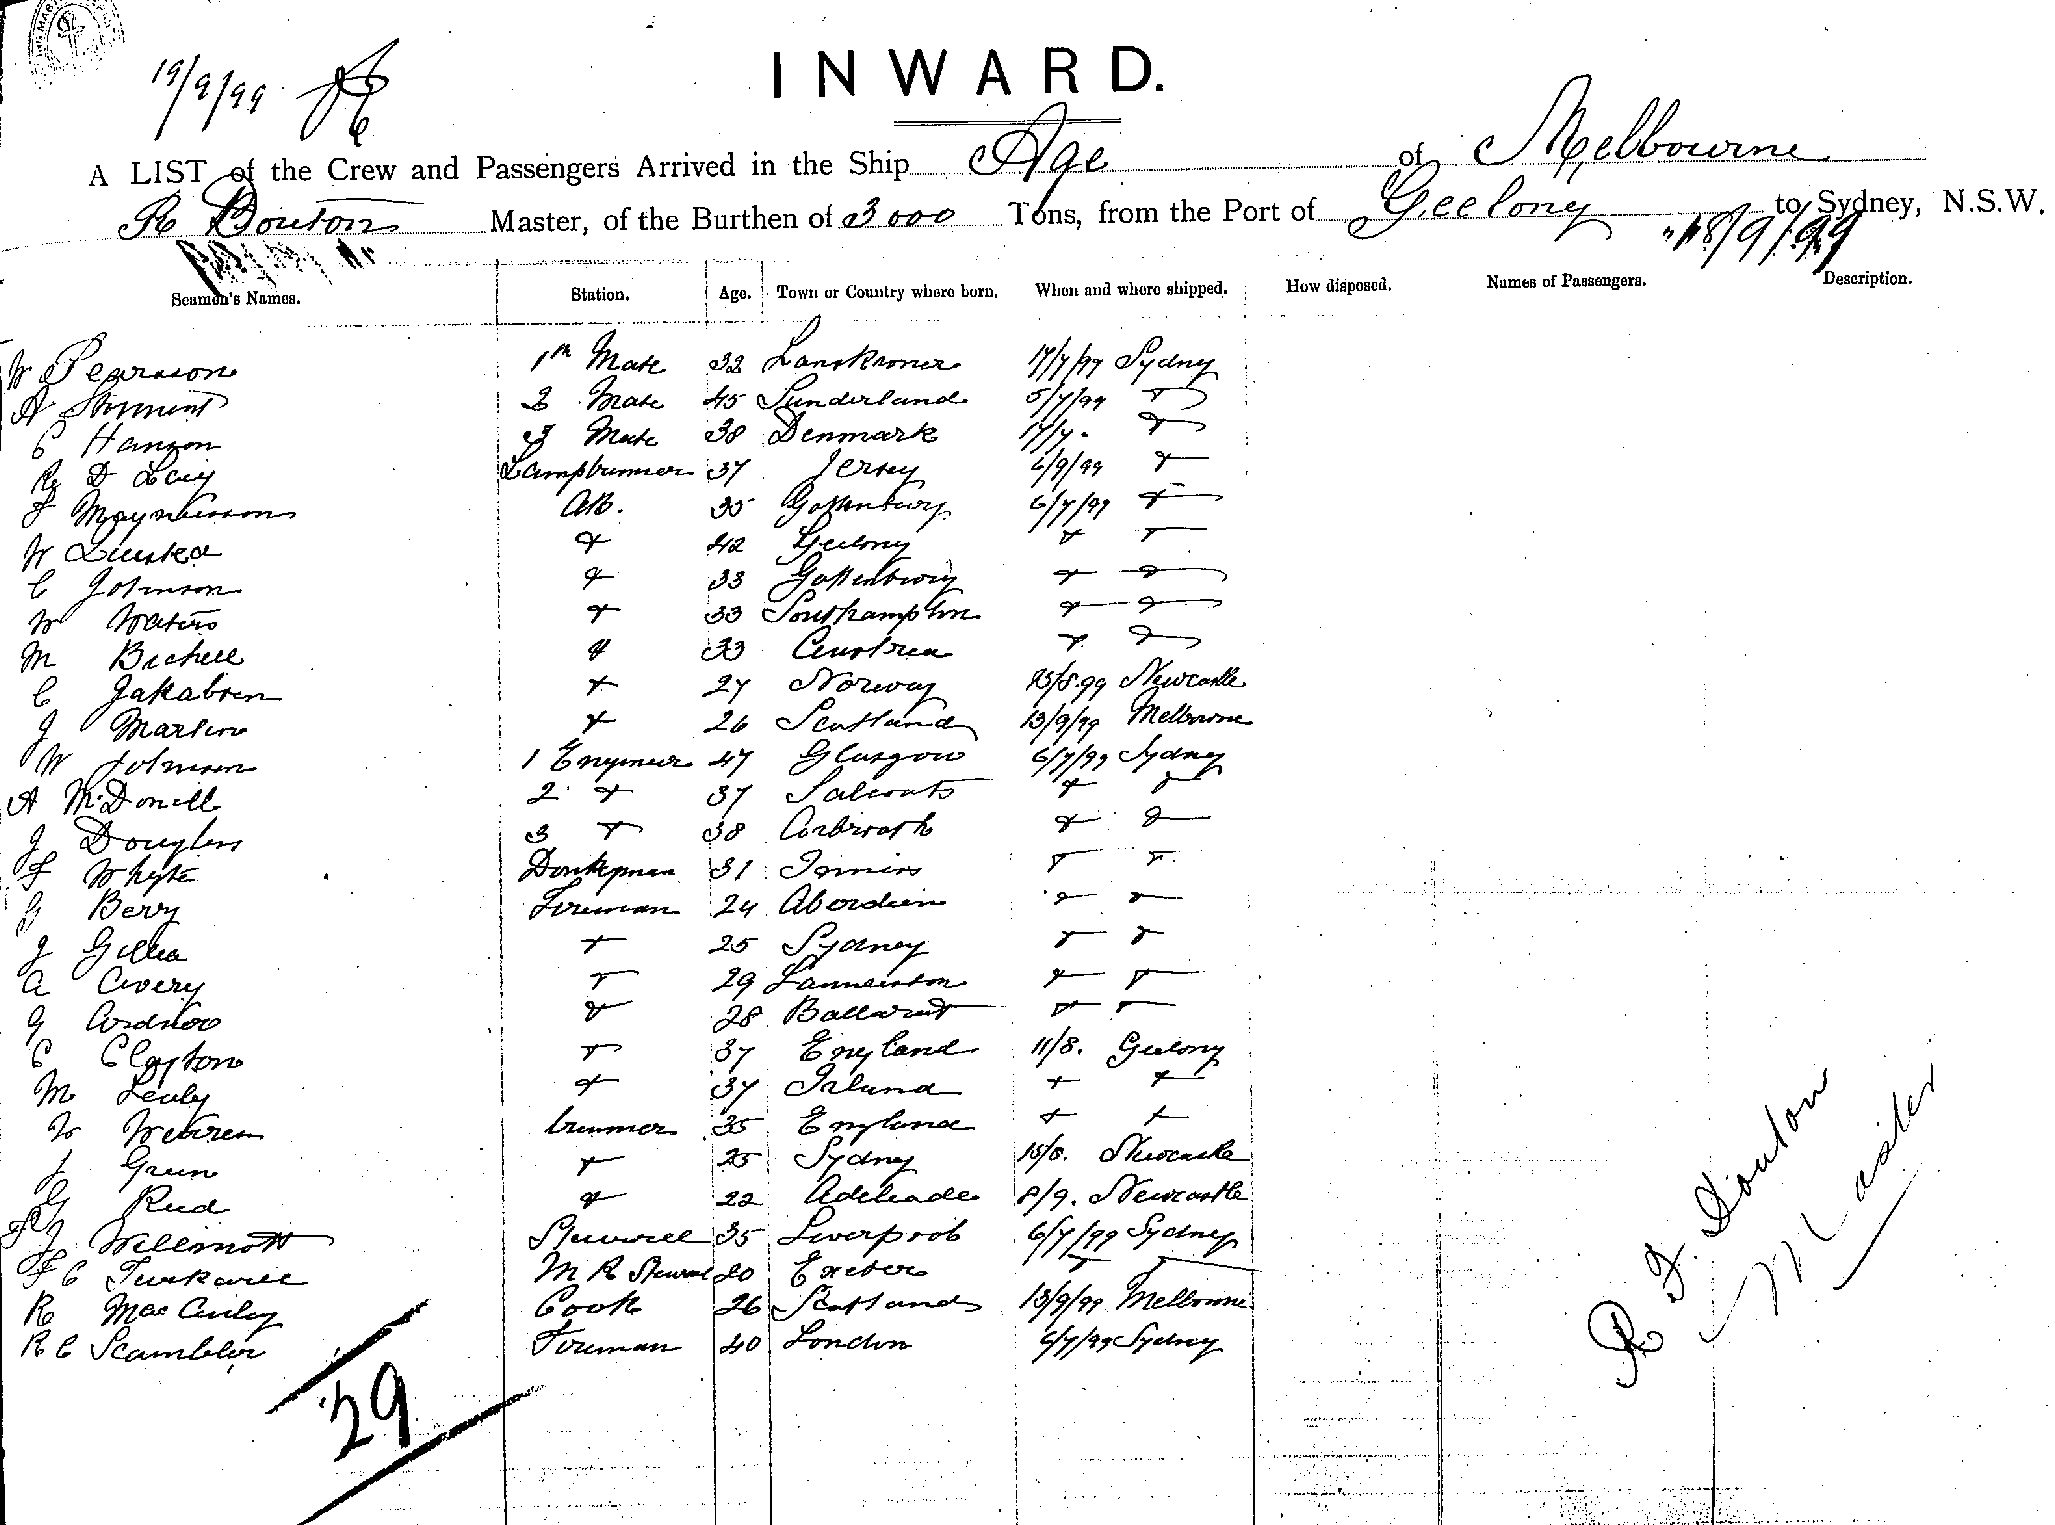 19/9/99
INWARD.
A LIST of the Crew and Passengers Arrived in the Ship Age of Melbourne
R Douton Master, of the Burthen of 3000 Tons, from the Port of Geelong to Sydney, N.S.W.
18/9/99
Seamen's Names. Station. Age. Town or Country where born. When and where shipped. How disposed. Names of Passengers. Description.
W Pearson 1st Mate 32 Landskroner 17/7/99 Sydney
A Storment 2 Mate 45 Sunderland 5/7/99
C Hanson 3 Mate 38 Denmark 17/7
R D Lucy Lamptrimmer 37 Jersey 6/9/99
F Maynusson AB. 35 Gottenburg 6/7/99
W 42 Geelong
C Johnson 33 Gottenburg
W Waters 33 Southampton
M Bichell 33 Austrea
C Jakabsen 27 Norway 15/8.99 Newcastle
J Martin 26 Scotland 13/9/99 Melbourne
W Johnson 1 Engineer 47 Glasgow 6/7/99 Sydney
A McDonell 2 37 Salcoats
J Douglas 3 38 Arbroath
F Whyte Donkeyman 31
G Berry Fireman 24 Aberdeen
J Gillia 25 Sydney
A Avery 29 Launceston
G Ardnoo 28 Ballarat
C Clayton 37 England 11/8. Geelong
M Lealy 37 Irland
W trimmer 35 England
J Green 25 Sydney 15/8. Newcastle
G Reid 22 Adelaide 8/9. Newcastle
J Willmott Steward 35 Liverpool 6/7/99 Sydney
F C M R Steward 20 Exeter
R MacAuley Cook 26 Scotland 13/9/99 Melbourne
R C Scambler Fireman 40 London 6/7/99 Sydney
29
R F Douton
Master